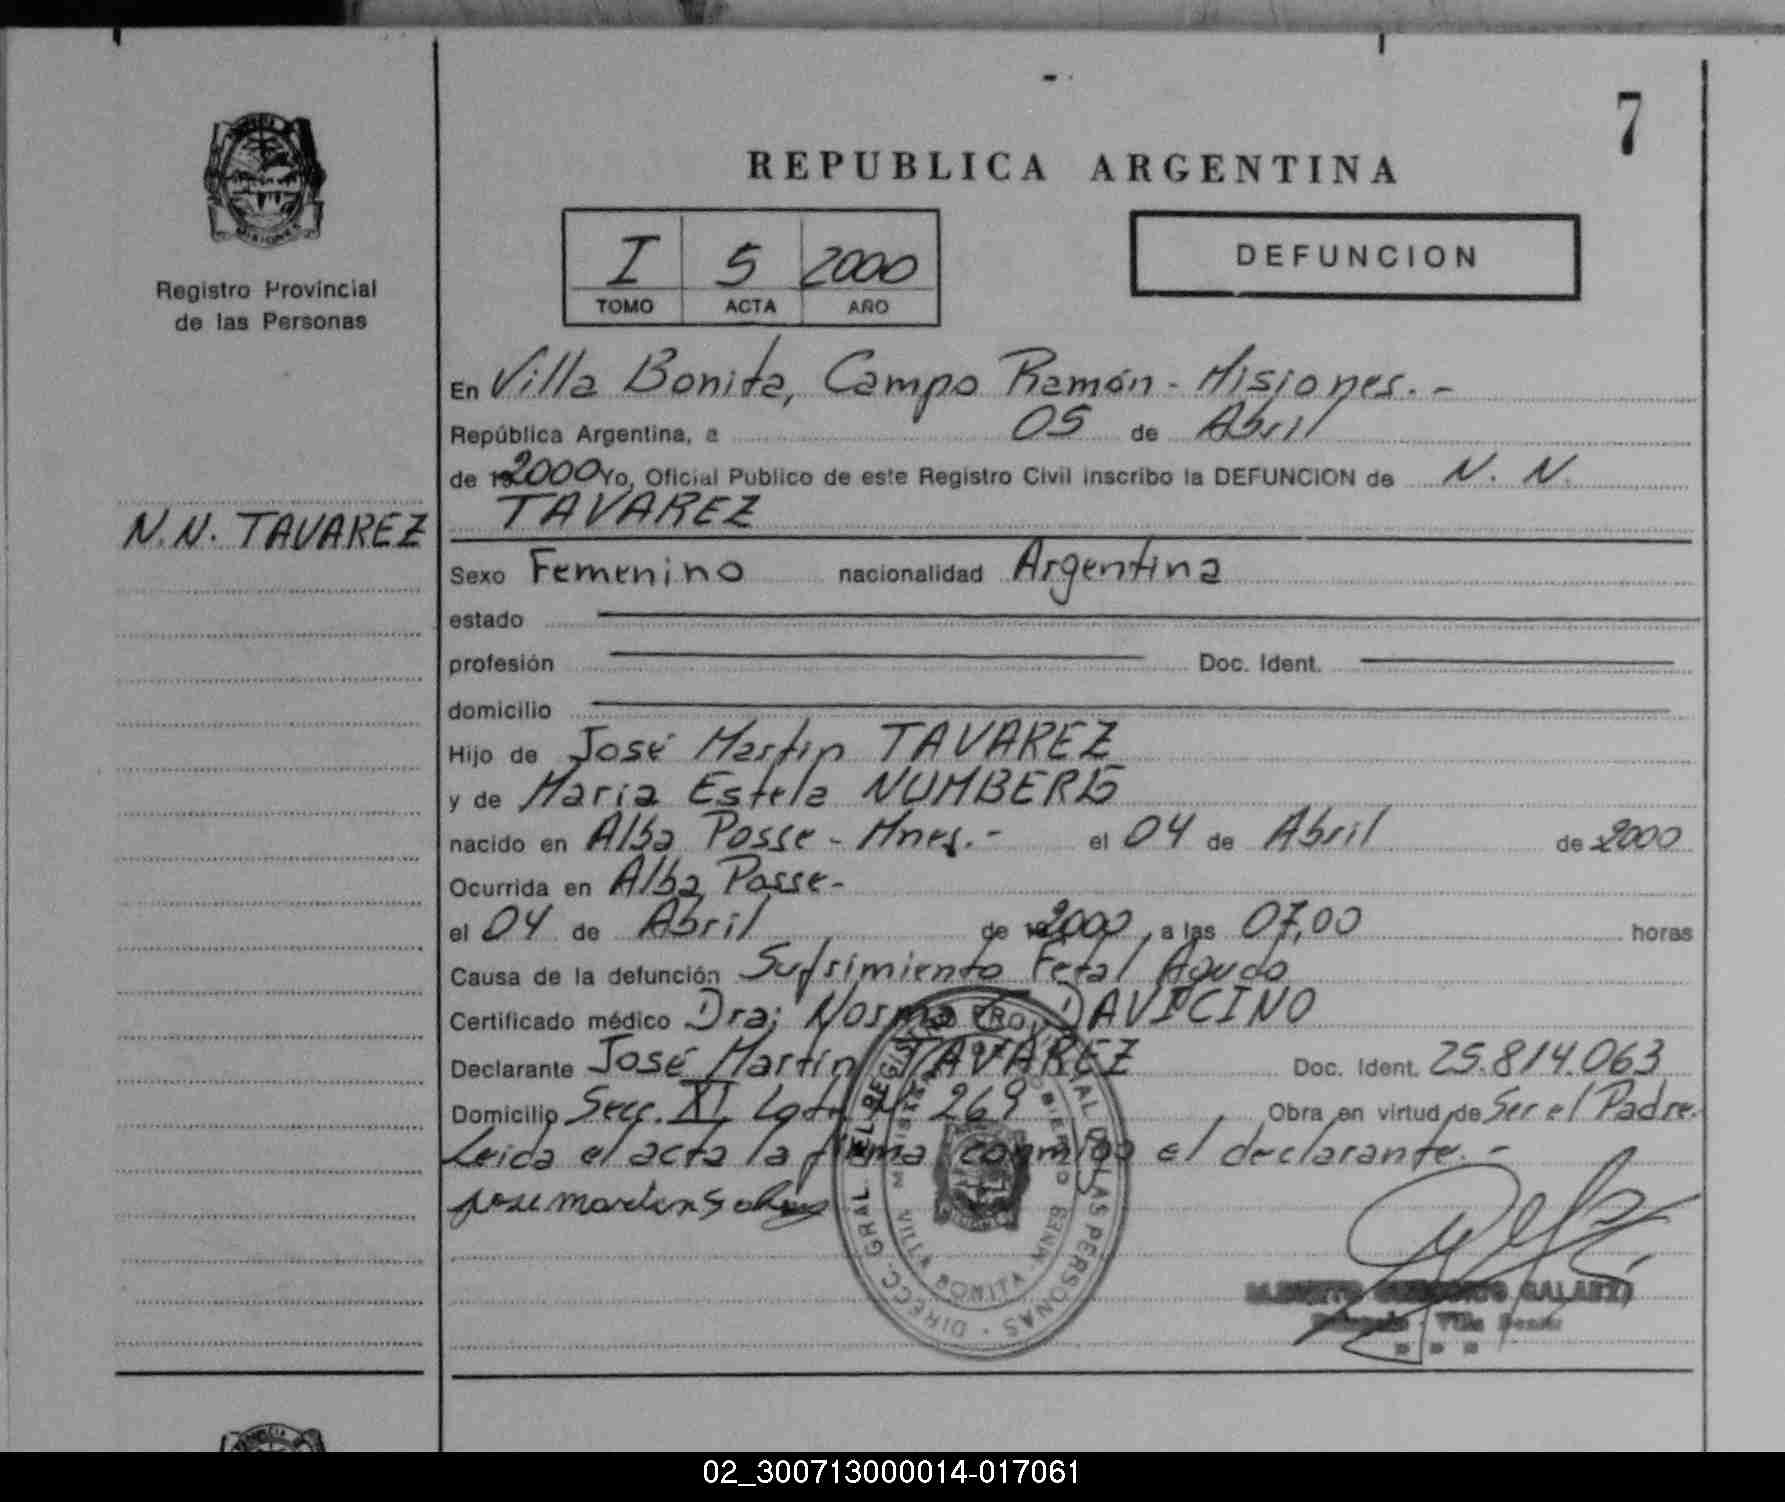 7
REPUBLICA ARGENTINA
I 5 2000
TOMO ACTA AÑO
DEFUNCION
Registro Provincial
de las Personas
N.N. TAVAREZ
En Villa Bonita, Campo Ramón - Misiones.-
República Argentina, a 05 de Abril
de 2000 Yo, Oficial Publico de este Registro Civil inscribo la DEFUNCION de N. N.
TAVAREZ
Sexo Femenino nacionalidad Argentina
estado
profesión Doc. Ident.
domicilio
Hijo de José Martin TAVAREZ
y de Maria Estela
nacido en Alba Posse - Mnes.- el 04 de Abril de 2000
Ocurrida en Alba Posse-
el 04 de Abril de 2000, a las 07,00 horas
Causa de la defunción Sufrimiento Fetal Agudo
Certificado médico Dra; Norma DAVICINO
Declarante José Martin TAVAREZ Doc. Ident. 25.814.063
Domicilio Secc. XI Lote Nº 269 Obra en virtud de Ser el Padre.
Leida el acta la firma conmigo el declarante.-
DIRECC. GRAL. DEL REGISTRO PROVINCIAL DE LAS PERSONAS
VILLA BONITA - MNES
MISIONES
GALARZA
02_300713000014-017061